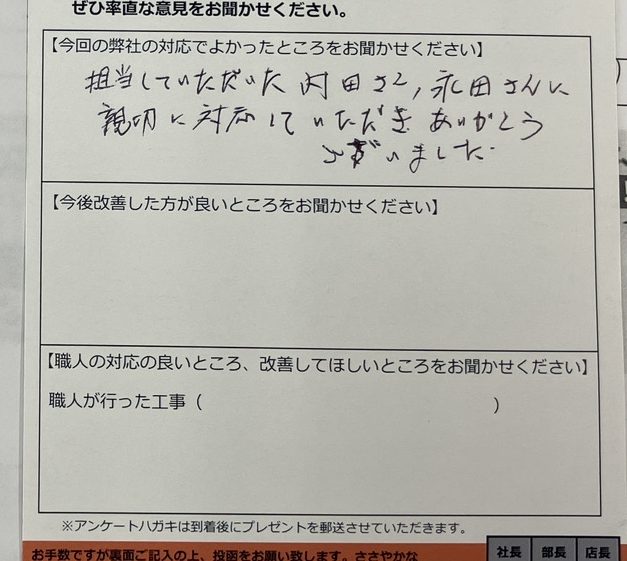 ぜひ率直な意見をお聞かせください。
【今回の弊社の対応でよかったところをお聞かせください】
担当していただいた 村田さん,永田さんに
親切に対応していただき ありがとう
ございました.
【今後改善した方が良いところをお聞かせください】
【職人の対応の良いところ、改善してほしいところをお聞かせください】
職人が行った工事（　）
※アンケートハガキは到着後にプレゼントを郵送させていただきます。
お手数ですが裏面ご記入の上、投函をお願い致します。ささやかな
社長 部長 店長